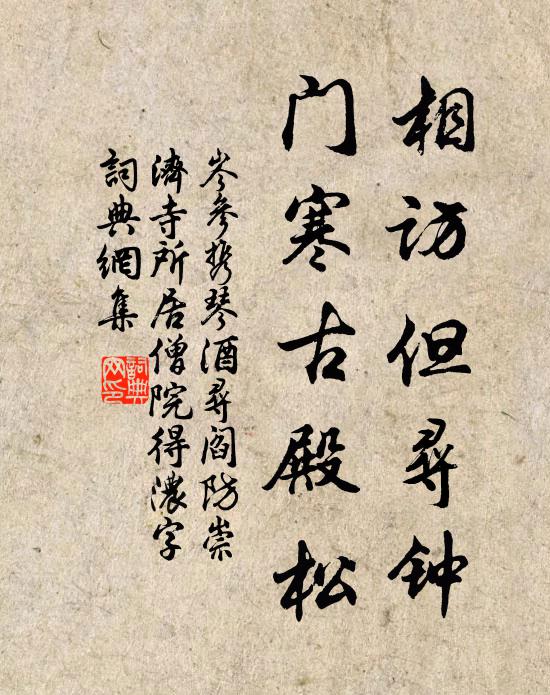 相访但尋钟
门寒古殿松
岑参携琴酒尋阎防崇
濟寺所居僧院得濃字
詞典網集
詞典
网印